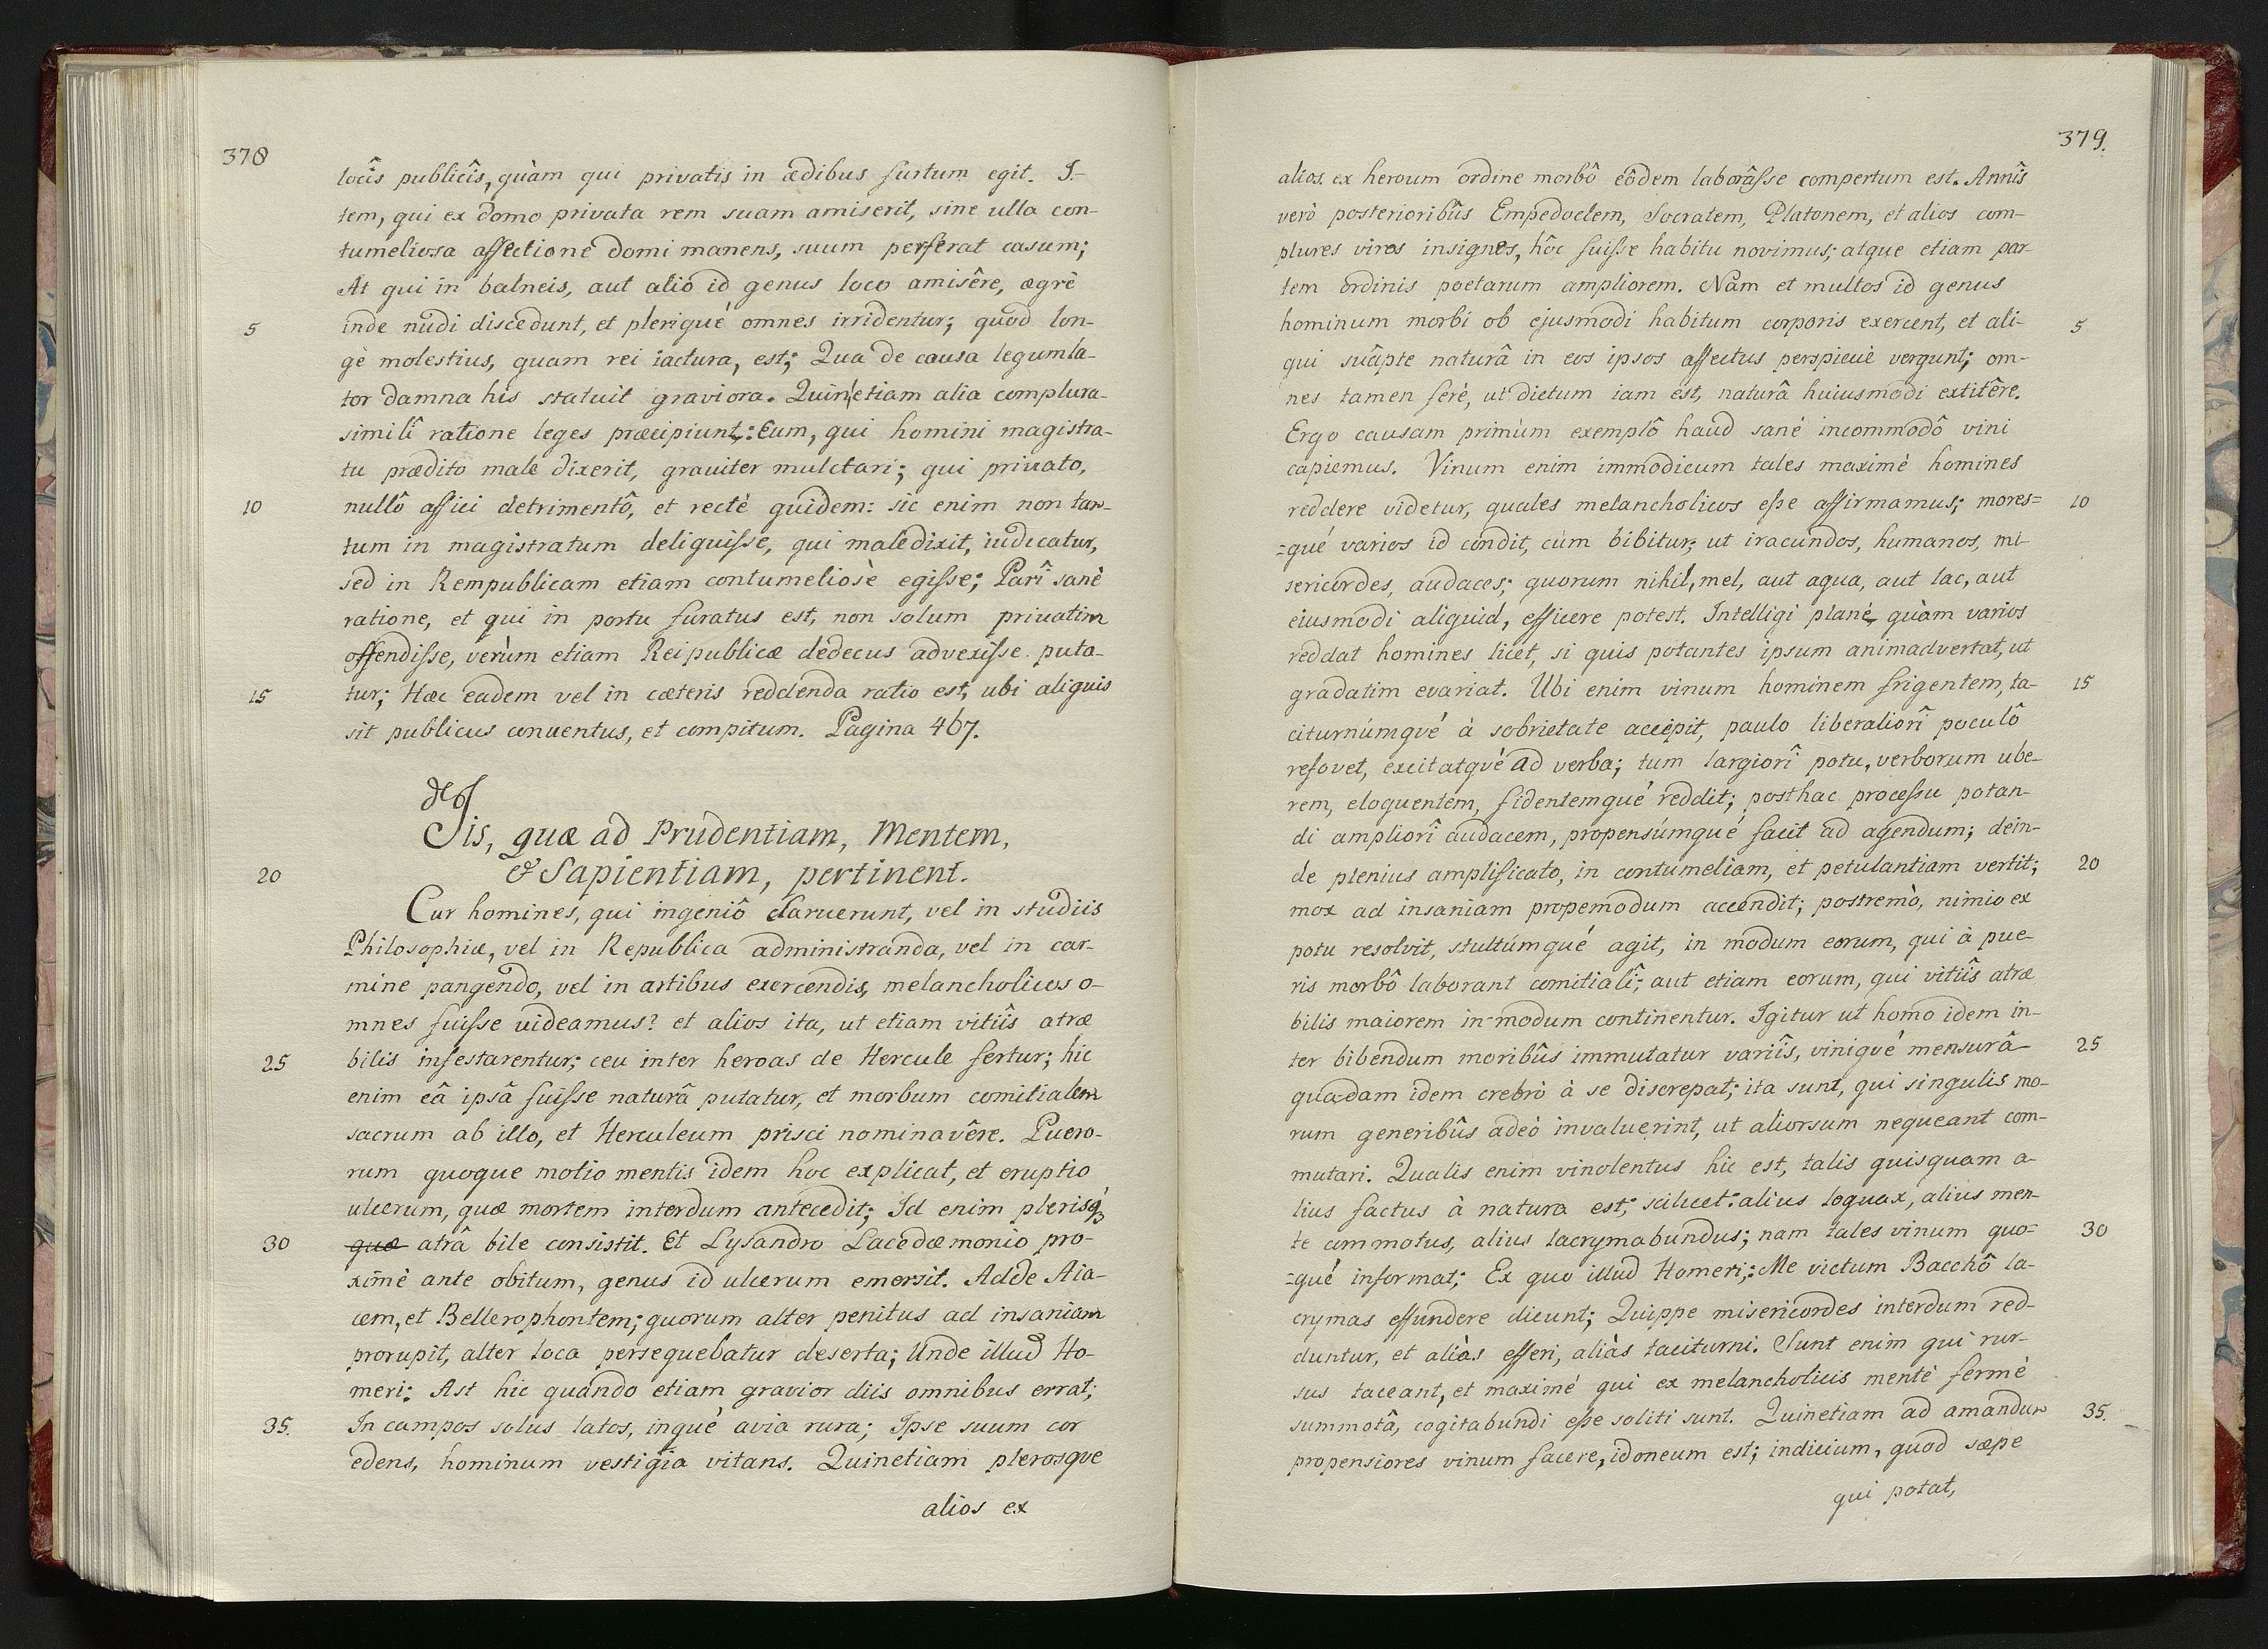 378
locîs publicîs, quàm qui privatis in ædibus furtum egit. I-
tem, qui ex domo privata rem suam amiserit, sine ulla con-
tumeliosa affectione domi manens, suum perferat casum;
At qui in balneis, aut alio id genus loco amisêre, ægrè
5 inde nudi discedunt, et plerique omnes irridentur; quod lon-
gè molestius, quam rei iactura, est; Qua de causa legumla-
tor damna his statuit graviora. Quin etiam alia complura
similî ratione leges præcipiunt: Eum, qui homini magistra-
tu prædito male dixerit, grauiter mulctari; qui priuato,
10 nullô affici detrimentô, et rectè quidem: sic enim non tan-
tum in magistratum deliquisse, qui maledixit, iudicatur,
sed in Rempublicam etiam contumeliosè egisse; Parî sanè
ratione, et qui in portu furatus est, non solum priuatim
offendisse, verùm etiam Reipublicæ dedecus advexisse puta-
15 tur; Hæc eadem vel in cæteris reddenda ratio est, ubi aliquis
sit publicus conuentus, et compitum. Pagina 467.
de
Iis, quæ ad Prudentiam, Mentem,
20 & Sapientiam, pertinent.
Cur homines, qui ingeniô claruerunt, vel in studiis
Philosophiæ, vel in Republica administranda, vel in car-
mine pangendo, vel in artibus exercendis, melancholicos o-
mnes fuisse uideamus? et alios ita, ut etiam vitiîs atræ
25 bilis infestarentur; ceu inter heroas de Hercule fertur; hic
enim eâ ipsâ fuisse naturâ putatur, et morbum comitialem
sacrum ab illo, et Herculeum prisci nominavêre. Puero-
rum quoque motio mentis idem hoc explicat, et eruptio
ulcerum, quæ mortem interdum antecedit; Id enim plerisq́ꝫ
30 quæ atrâ bile consistit. Et Lysandro Lacedæmonio pro-
ximè ante obitum, genus id ulcerum emersit. Adde Aia-
cem, et Bellerophontem; quorum alter penitus ad insaniam
prorupit, alter loca persequebatur deserta; Unde illud Ho-
meri: Ast hic quando etiam gravior diis omnibus errat;
35. In campos solus latos, inqué avia rura; Ipse suum cor
edens, hominum vestigia vitans. Quinetiam plerosque
alios ex
379.
alios ex heroum ordine morbô eôdem laborâsse compertum est. Annîs
verò posterioribûs Empedoclem, Socratem, Platonem, et alios com-
plures viros insignes, hôc fuisse habitu novimus; atque etiam par-
tem ordinis poetarum ampliorem. Nam et multos id genus
hominum morbi ob ejusmodi habitum corporis exercent, et ali- 5
qui suâpte naturâ in eos ipsos affectus perspicuè vergunt; om-
nes tamen ferè, ut dictum iam est, naturâ huiusmodi extitêre.
Ergo causam primùm exemplô haud sanè incommodô vini
capiemus. Vinum enim immodicum tales maximè homines
reddere videtur, quales melancholicos esse affirmamus; mores= 10
=qué varios id condit, cùm bibitur; ut iracundos, humanos, mi-
sericordes, audaces; quorum nihil, mel, aut aqua, aut lac, aut
eiusmodi aliquid, efficere potest. Intelligi planè, quàm varios
reddat homines licet, si quis potantes ipsum animadvertat, ut
gradatim evariat. Ubi enim vinum hominem frigentem, ta- 15
citurnúmqué à sobrietate accepit, paulo liberaliorî poculô
refovet, excitatqué ad verba; tum largiorî potu, verborum ube-
rem, eloquentem, fidentemqué reddit; posthac processu potan-
di ampliorî audacem, propensúmqué facit ad agendum; dein-
de plenius amplificato, in contumeliam, et petulantiam vertit; 20
mox ad insaniam propemodum accendit; postremò, nimio ex
potu resolvit, stultúmqué agit, in modum eorum, qui à pue-
ris morbô laborant comitialî; aut etiam eorum, qui vitiîs atræ
bilis maiorem in modum continentur. Igitur ut homo idem in-
ter bibendum moribûs immutatur variîs, viniqué mensurâ 25
quadam idem crebrò à se discrepat; ita sunt, qui singulis mo-
rum generibûs adeò invaluerint, ut aliorsum nequeant com-
mutari. Qualis enim vinolentus hic est, talis quisquam a-
lius factus à natura est; scilicet: alius loquax, alius men-
te commotus, alius lacrymabundus; nam tales vinum quo= 30
=qué informat; Ex quo illud Homeri,: Me victum Bacchô la-
crymas effundere dicunt; Quippe misericordes interdum red-
duntur, et aliàs efferi, aliàs taciturni. Sunt enim qui rur-
sus taceant, et maximé qui ex melancholicis mente fermè
summotâ, cogitabundi esse soliti sunt. Quinetiam ad amandum 35.
propensiores vinum facere, idoneum est; indicium, quod sæpe
qui potat,